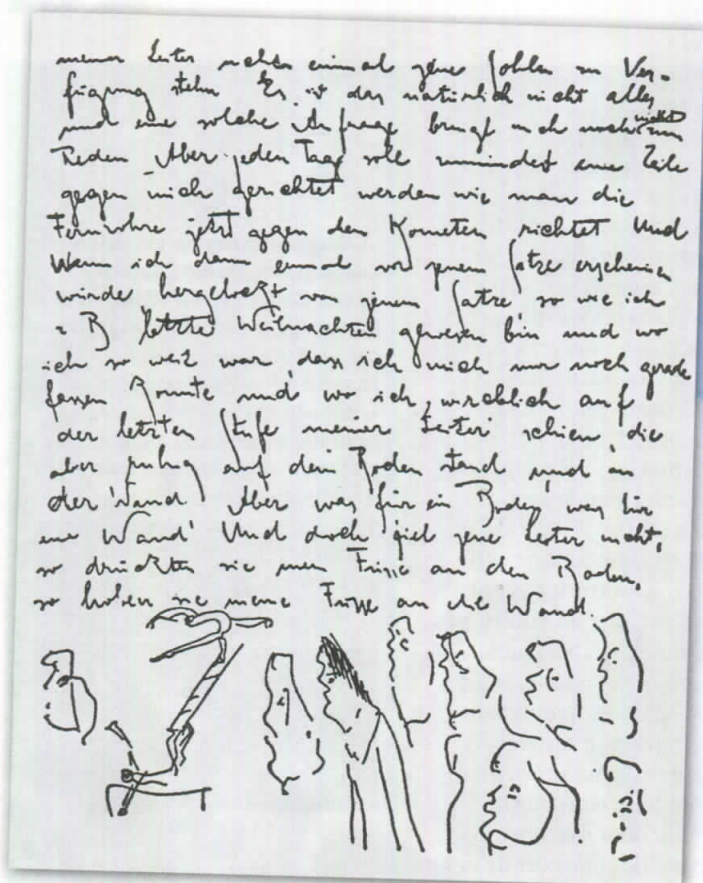 meiner Leiter nicht einmal jene Sohlen zur Ver-
fügung stehn Es ist das natürlich nicht alles
und eine solche Anfrage bringt mich noch nicht zum
Reden Aber jeden Tag soll zumindest eine Zeile
gegen mich gerichtet werden wie man die
Fernrohre jetzt gegen den Kometen richtet Und
Wenn ich dann einmal vor jenem Satze erscheinen
würde hergelockt von jenem Satze, so wie ich
z B letzte Weihnachten gewesen bin und wo
ich so weit war, dass ich mich nur noch gerade
fassen konnte und wo ich wirklich auf
der letzten Stufe meiner Leiter schien, die
aber ruhig auf dem Boden stand und an
der Wand Aber was für ein Boden, was für
eine Wand! Und doch fiel jene Leiter nicht,
so drückten sie meine Füsse an den Boden,
so hoben sie meine Füsse an die Wand.